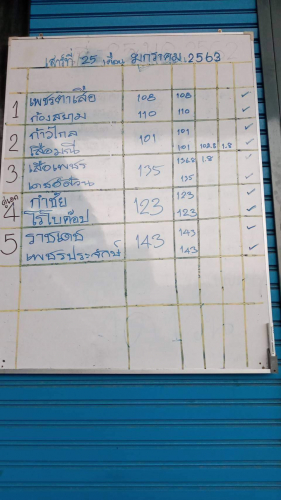 เสาร์ที่ 25 เดือน มกราคม 2563
1 เพชรตาเสือ 108 108 ✓
ก้องสยาม 110 110 ✓
2 ก้าวไกล 101 101
เสือมณี 101 102.5 1.8 ✓
3 เสือเพชร 135 136.8 1.8 ✓
135 ✓
คู่เอก
4 กำชัย 123 123 ✓
ไรโบค๊อป 123 ✓
5 ราชเดช 143 143 ✓
เพชรประจักษ์ 143 ✓